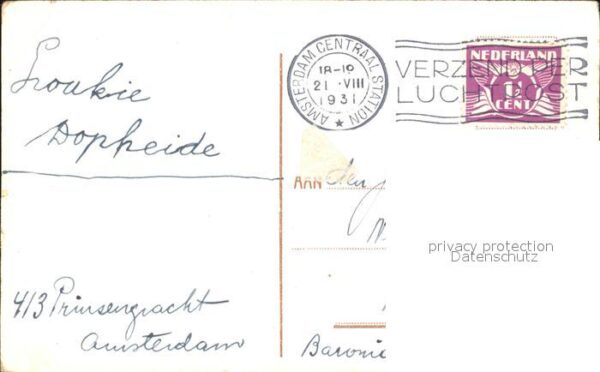 Loukie
Dopheide
413 Prinsengracht
Amsterdam
AMSTERDAM CENTRAAL STATION
18-19
21 VIII
1931
VERZEND PER
LUCHTPOST
NEDERLAND
1½
CENT
AAN den
privacy protection
Datenschutz